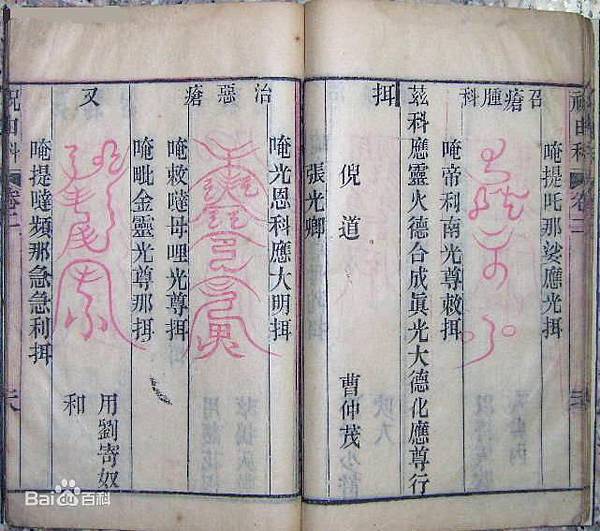 祝由科 卷二
唵提吒那娑應光挕
召瘡腫科
唵帝利南光尊敕挕
茲科應靈火德合成眞光大德化應尊行
挕
倪道 曹仲茂
張光卿
唵光恩科應大明挕
治惡瘡
唵敕噠母哩光尊挕
唵毗金靈光尊那挕
又
用劉寄奴
和
唵提噠頻那急急利挕
祝由科 卷二
Bai百科